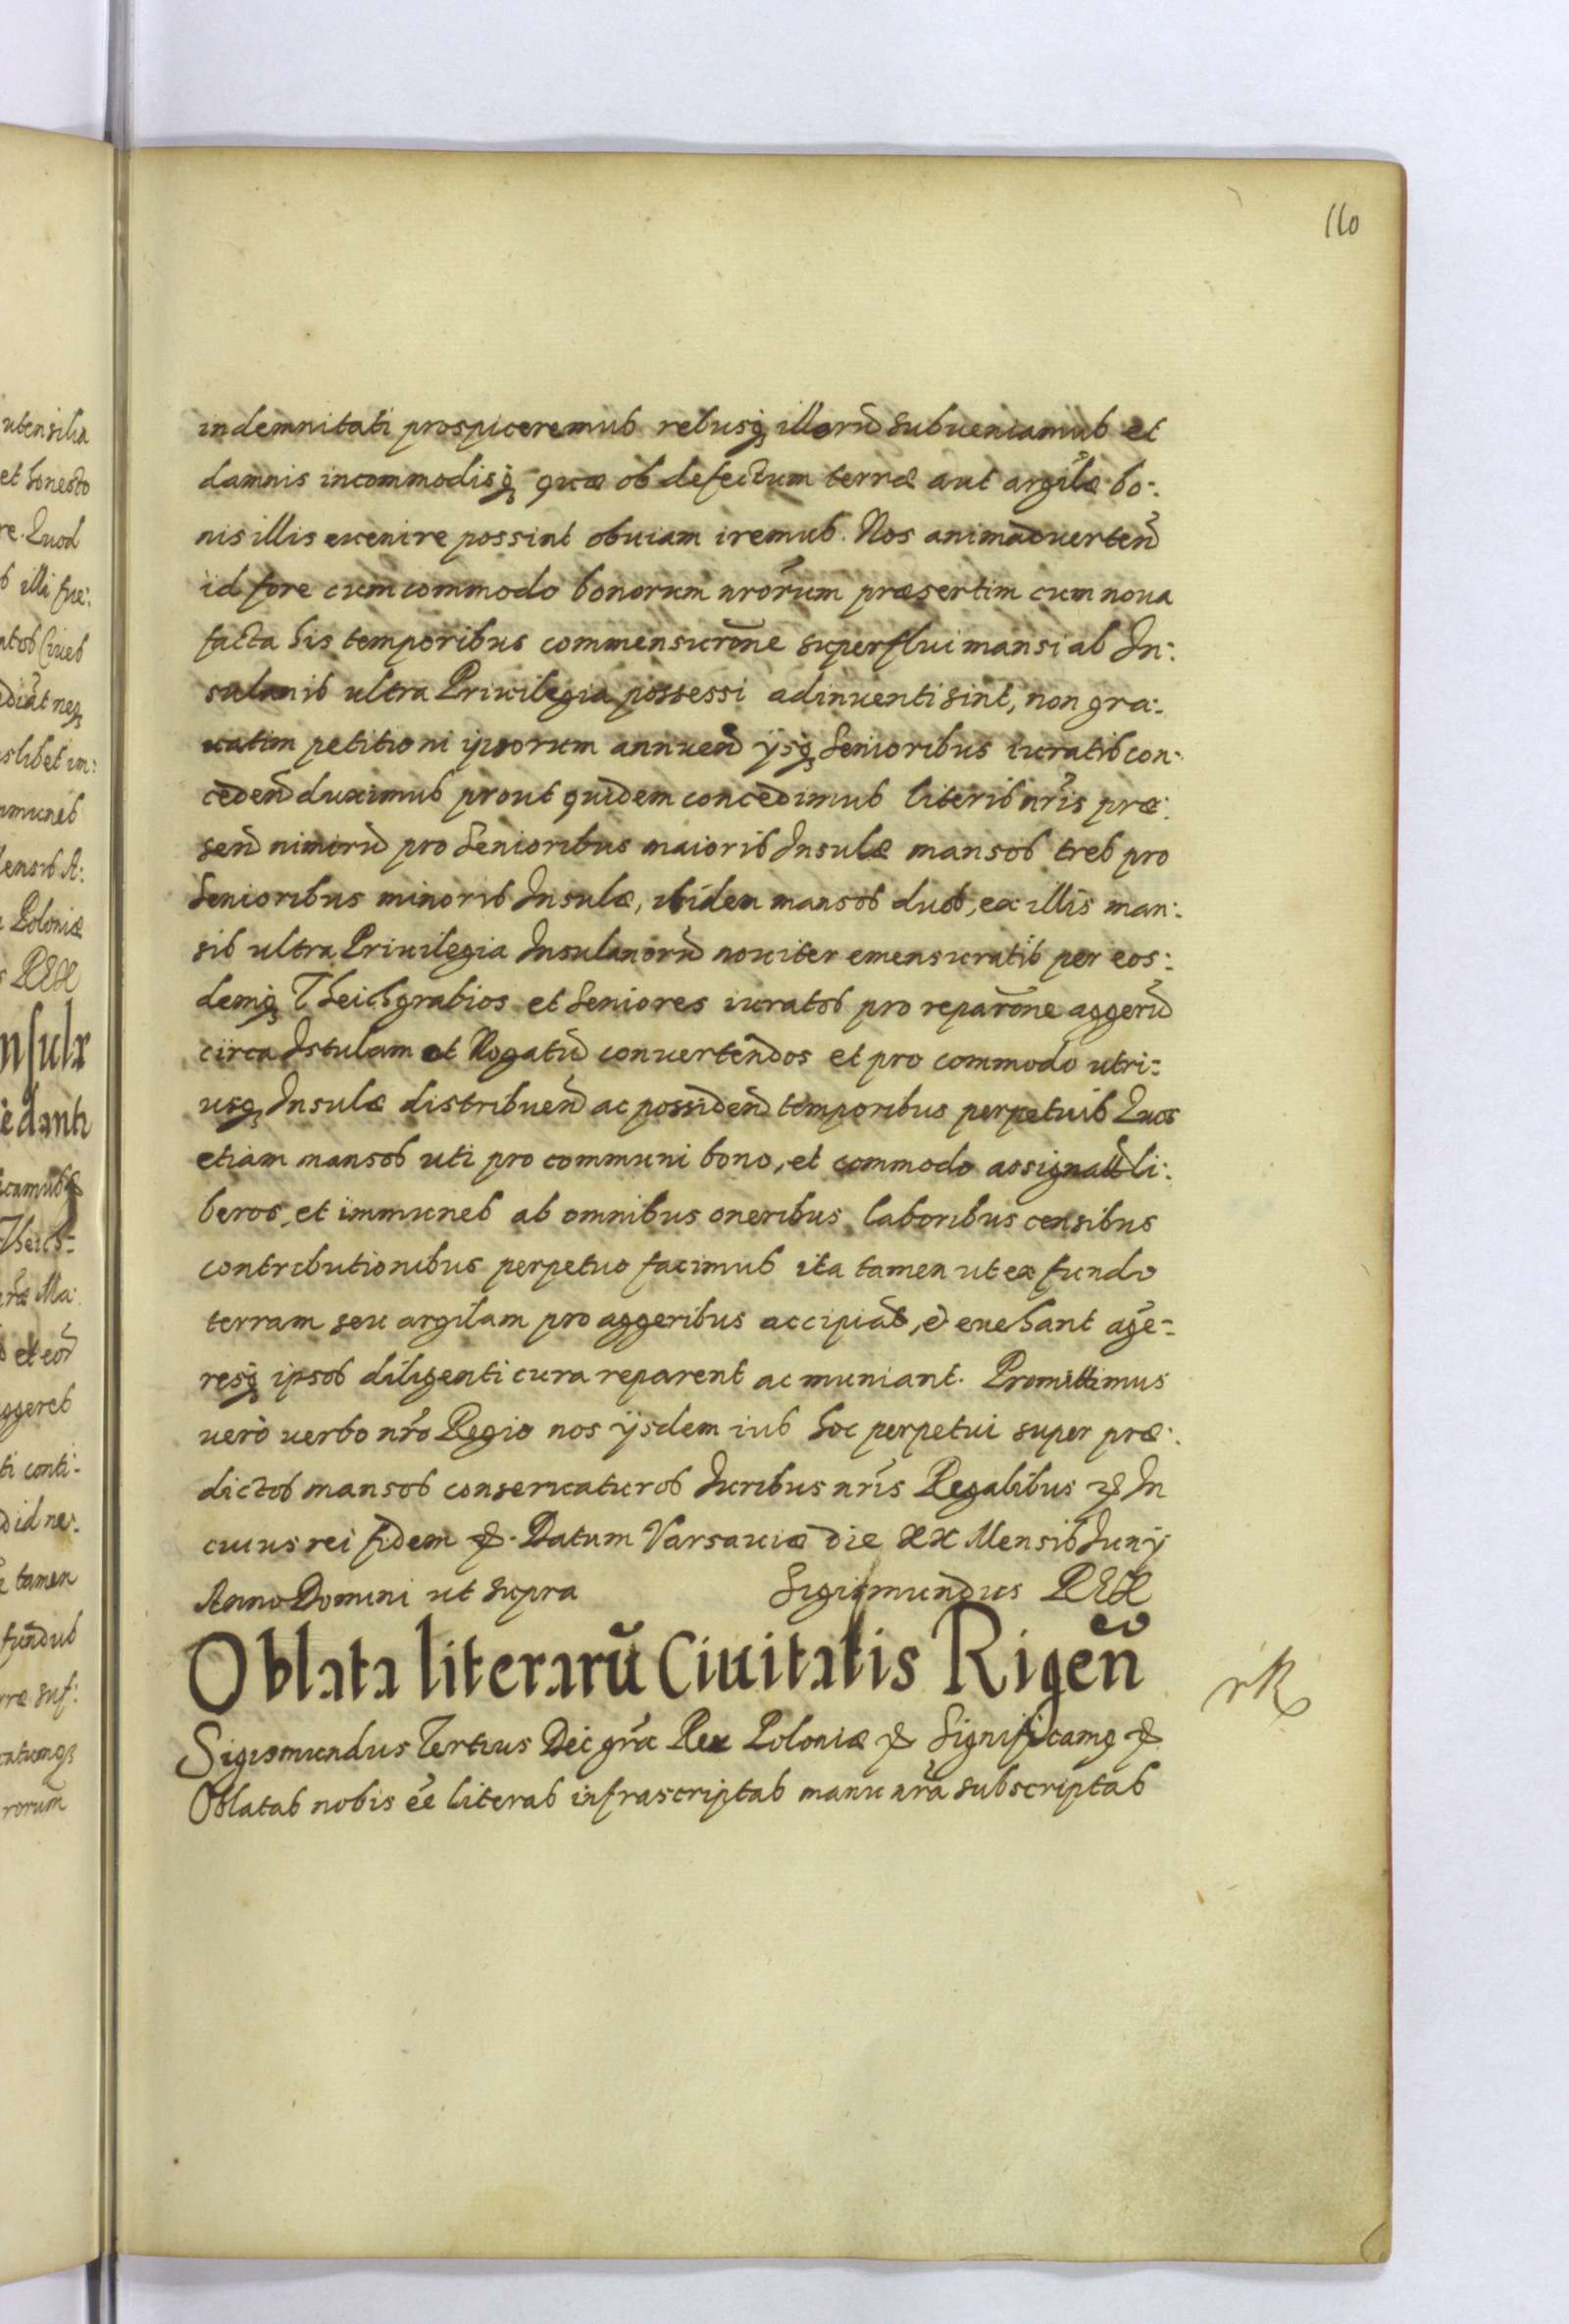 160
indemnitati prospiceremus rebusq̨ illorũ subueniamus et
damnis incommodisq̨ quæ ob defectum terræ aut argilæ bo-:
nis illis euenire possint obuiam iremus. Nos animaduerteñ
id fore cum commodo bonorum nr̃orum præsertim cum noua
facta his temporibus commensurõne superflui mansi ab In-:
sulanis ultra Priuilegia possessi adinuenti sint, non gra-:
uatim petitioni ipsorum annueñ ijsq̨ Senioribus iuratis con-:
cedeñ duximus prout quidem concedimus literis nr̃is præ-:
señ nimirũ pro Senioribus maioris Insulæ mansos tres pro
Senioribus minoris Insulæ, itidem mansos duos, ex illis man-:
sis ultra Priuilegia Insulanorũ nouiter emensuratis per eos-:
demq̨ Theichgrabios et Seniores iuratos pro reparõne aggerũ
circa Istulam et Nogatũ conuertendos et pro commodo utri-:
usq̨ Insulæ distribueñ ac possideñ temporibus perpetuis Quos
etiam mansos uti pro communi bono, et commodo assignatos li-:
beros, et immunes ab omnibus oneribus laboribus censibus
contributionibus perpetuo facimus ita tamen ut ex fundo
terram seu argilam pro aggeribus accipiãt, et euehant agge-:
resq̨ ipsos diligenti cura reparent ac muniant. Promittimus
uerò uerbo nr̃o Regio nos ijsdem ius hoc perpetui super præ-:
dictos mansos conseruaturos Iuribus nr̃is Regalibus & In
cuius rei fidem &. Datum Varsauiæ die XX Mensis Iunij
Anno Domini ut supra Sigismundus REX
Oblata literarũ Ciuitatis Rigeñ
rR
Sigismundus Tertius Dei gr̃a Rex Poloniæ & Significamq &
Oblatas nobis ee᷃ literas infrascriptas manu nr̃a subscriptas